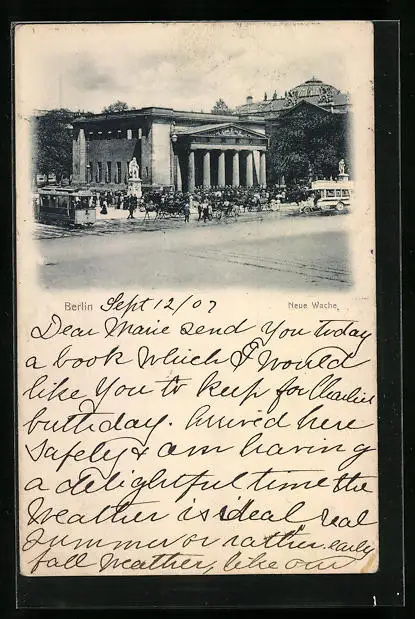 Berlin Sept 12/07 Neue Wache.
Dear Marie send you today
a book which I would
like you to keep for Charlies
birthday. Arrived here
safely & am having
a delightful time the
weather is ideal real
summer or rather early
fall weather, like our